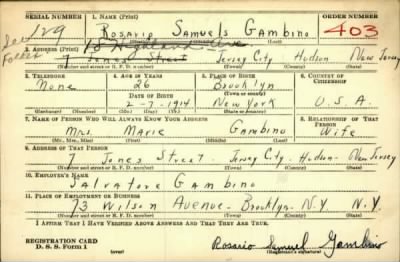 SERIAL NUMBER 1. NAME (Print) ORDER NUMBER
129 Rosario Samuels Gambino 403
2. ADDRESS (Print)
18 Highland Ave
7 Jones Street Jersey City Hudson New Jersey
(Number and street or R. F. D. number) (Town) (County) (State)
3. TELEPHONE 4. AGE IN YEARS 5. PLACE OF BIRTH 6. COUNTRY OF CITIZENSHIP
None 26 Brooklyn
DATE OF BIRTH (Town or county)
2-7-1914 New York U.S.A.
(Exchange) (Number) (Mo.) (Day) (Yr.) (State or country)
7. NAME OF PERSON WHO WILL ALWAYS KNOW YOUR ADDRESS 8. RELATIONSHIP OF THAT PERSON
Mrs. Marie Gambino Wife
(Mr., Mrs., Miss) (First) (Middle) (Last)
9. ADDRESS OF THAT PERSON
7 Jones Street. Jersey City. Hudson. New Jersey
(Number and street or R. F. D. number) (Town) (County) (State)
10. EMPLOYER'S NAME
Salvatore Gambino
11. PLACE OF EMPLOYMENT OR BUSINESS
73 Wilson Avenue. Brooklyn. N.Y. N.Y.
(Number and street or R. F. D. number) (Town) (County) (State)
I AFFIRM THAT I HAVE VERIFIED ABOVE ANSWERS AND THAT THEY ARE TRUE.
REGISTRATION CARD
D. S. S. Form 1 (over) Rosario Samuel Gambino
(Registrant's signature)